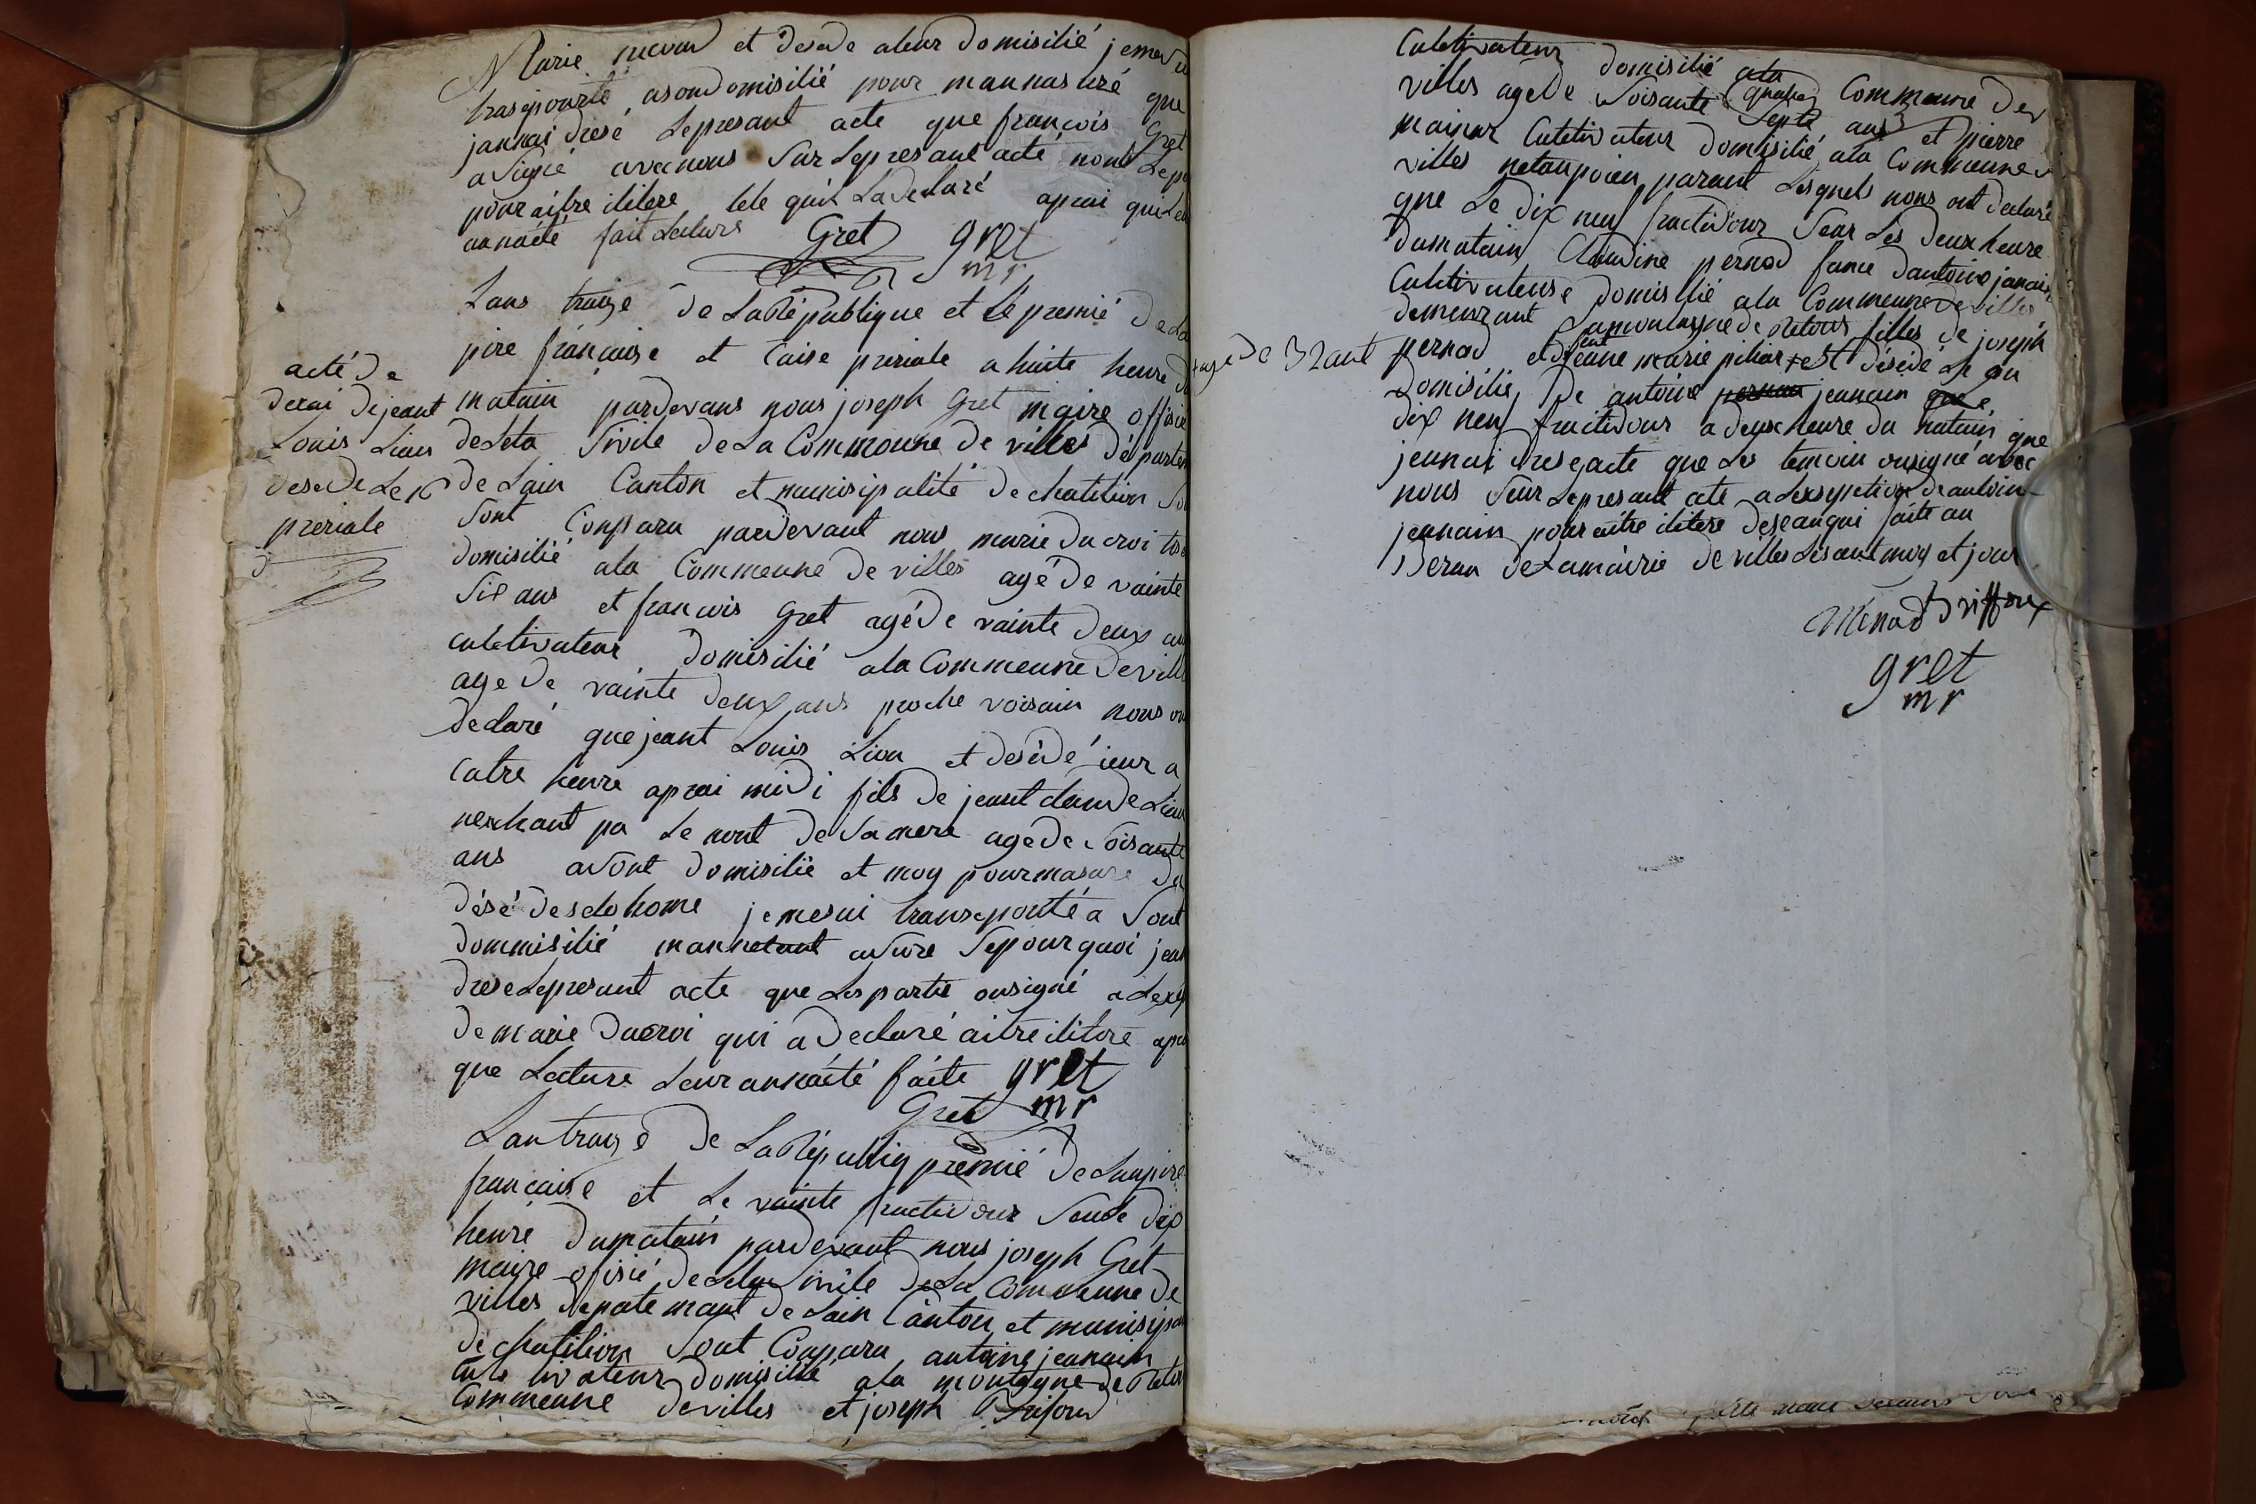 Marie et desede aleur domisilié jeme
trasepourté asondomisilié pour mannasuré que
jannai dresé Lepresant acte que françois Gret
a Signé avecnous Sur Lepresant acté nont Lepe
pour aitre ilitere lele quil Ladeclaré aprai quiLeu
annaété fait Lecture Gret gret
mr
Lans traize de La République et Le premié de La
pire française et Caise preriale a huite heure du
matain pardevans nous joseph Gret maire offisié
deleta Sivile de La Commeune de villes départem
de Lain Canton et munisipalité de chatilion Sou
Sont Conparu pardevant nous marie ducroi
domisilié ala Commeune de villes agé de vainte
Six ans et francois Gret agé de vainte deux an
cultivateur domisilié ala Commeune de ville
age de vainte deux ans proche voisain nous on
declaré que jeant Louis Lion et desédé ieur a
catre heure aprai midi fils de jeant claude Lion
nexhant pa Le nont de Sa mere agé de Soisante
ans a Sont domisilié et moy pour masure du
désé deselohome je mesui transeporté a Sont
dommisilié mannetant asure Sepourquoi jean
dresé Lepresant acte que Les partie onsigné a Lexep
de marie ducroi qui a declaré aitre ilitere apra
que Lecture Leurannaété faite gret
Gret mr
Lan traize de La Républiq premié de Lanpire
française et Le vainte fructidour Seurle dix
heure dumatain pardevant nous joseph Gret
maire ofisié deletat Sivile de La Commeune de
villes depatemant de Lain Canton et munisipa
de chatilion Sont Conparu antoine jeannain
cultivateur domisilié ala montagne de Retor
Commeune de villes et joseph
acté de
desai dejeant
Louis Lion
desede Le 16
preriale
Cultivateur domisilié ala Commeune de
villes agé de Soisante septe ans et pierre
mainar Cultivateur domisilié ala Commeune
villes netanpoien parant Lesquels nous ont declaré
que Le dix neuf fructidour Seur Les deux heure
dumatain Claudine pernod fame dantoine janain
Cultivateuse domisilié ala Commeune de villes
demeurant alamontagne de retors filles de joseph
+ agé de 32 ant
pernod et de jeanne marie piliar + et désédé Le ou
domisilie de antoine pernau jeannain que
dix neuf fructidour a deux heure du matain que
jennai dresé acte que Les temoin onsigné avec
nous Seur Lepresant ate a Lexsepetion de antoin
jeannain pour aitre ilitere deseanqui faite au
Berau de Lamairie de villes Lesant moy et jour
Ménod Briffoux
gret
mr